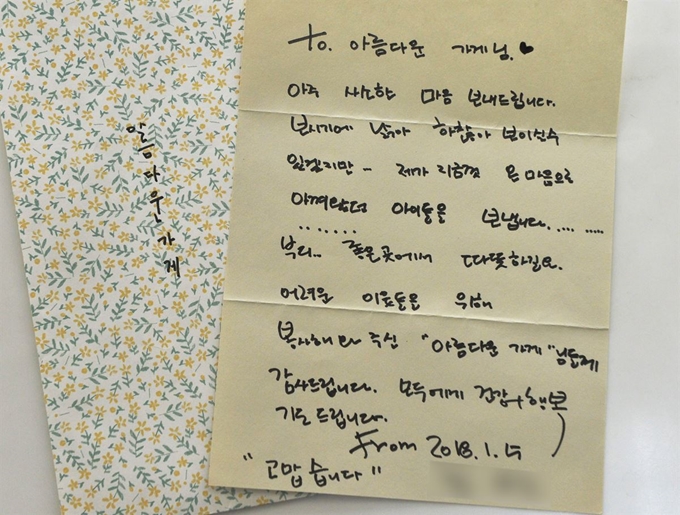 아름다운가게
To. 아름다운 가게님.♥
아주 사소한 마음 보내드립니다.
보시기에 낡아 하찮아 보이실수
있겠지만 - 제가 지금껏 온 마음으로
아껴왔던 아이들을 보냅니다.... .....
.......
부디.. 좋은곳에서 따뜻하길요.
어려운 이웃들을 위해
봉사해 주신 "아름다운 가게"님들께
감사드립니다. 모두에게 건강+행복
기도 드립니다.
From 2018.1.
"고맙습니다"